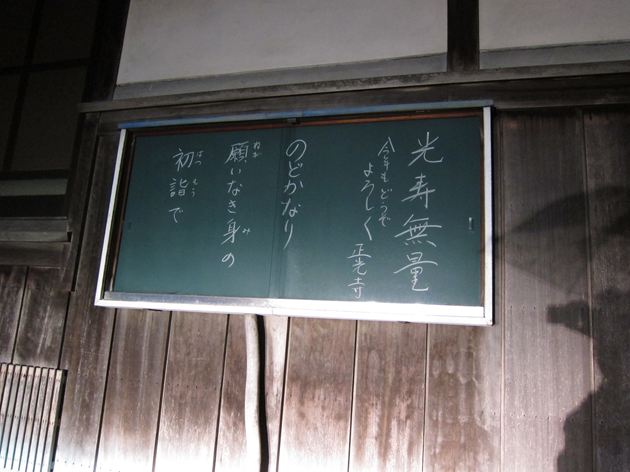 光寿無量
今年もどうぞ
よろしく
正光寺
のどかなり
ねが み
願いなき身の
はつ もう
初詣で